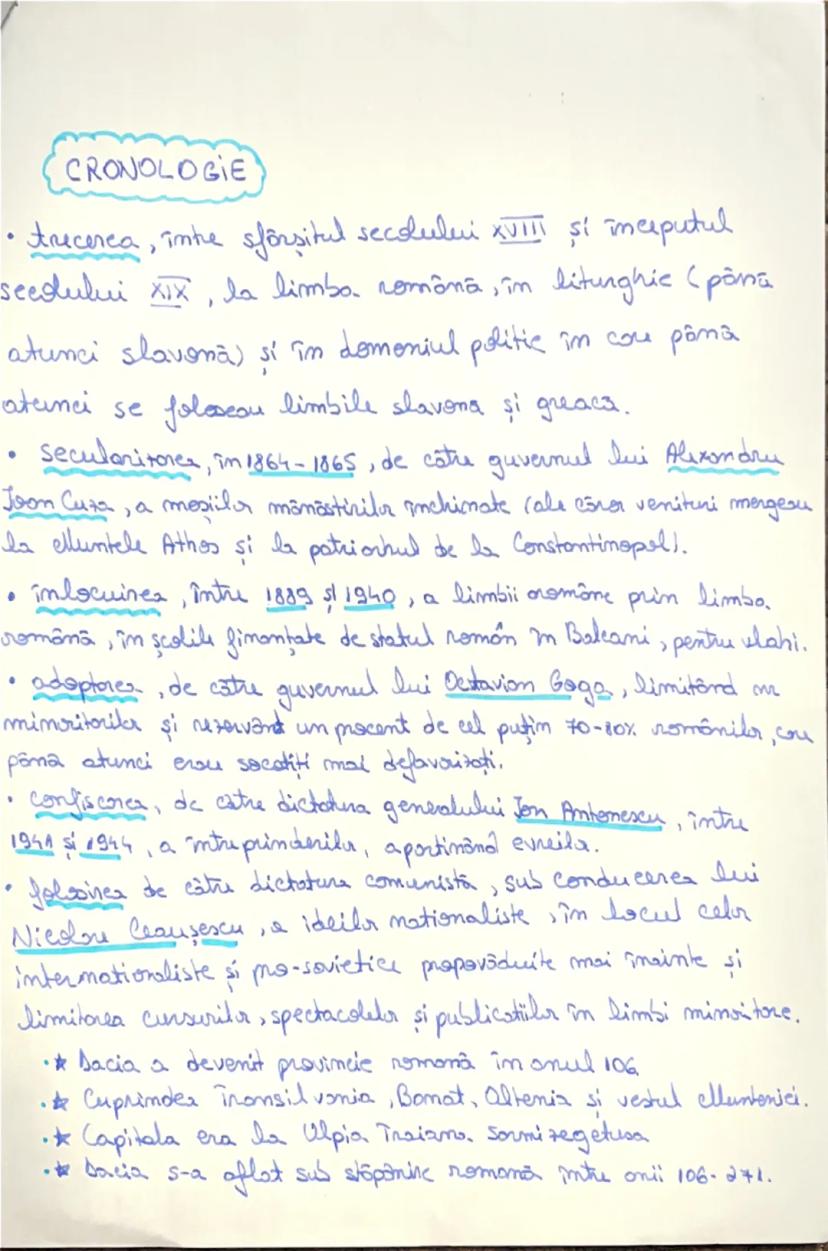 CRONOLOGIE
• trecerea, între sfârșitul secolului XVIII și începutul
secolului XIX, la limba română, în liturghie (până
atunci slavonă) și în domeniul politic în care până
atunci se foloseau limbile slavona și greaca.
• secularizarea, în 1864-1865, de către guvernul lui Alexandru
Ioan Cuza, a moșiilor mănăstirilor închinate (ale căror venituri mergeau
la Muntele Athos și la patriarhul de la Constantinopol).
• înlocuirea, între 1889 și 1940, a limbii aromâne prin limba
română, în școlile finanțate de statul român în Balcani, pentru vlahi.
• adoptarea, de către guvernul lui Octavian Goga, limitând nr
minoritarilor și rezervând un procent de cel puțin 70-80% românilor, care
până atunci erau socotiți mai defavorizați.
• confiscarea, de către dictatura generalului Ion Antonescu, între
1941 și 1944, a întreprinderilor, aparținând evreilor.
• folosirea de către dictatura comunistă, sub conducerea lui
Nicolae Ceaușescu, a ideilor naționaliste, în locul celor
internaționaliste și pro-sovietice propovăduite mai înainte și
limitarea cursurilor, spectacolelor și publicațiilor în limbi minoritare.
•★ Dacia a devenit provincie romană în anul 106
•★ Cuprindea Transilvania, Banat, Oltenia și vestul Munteniei.
•★ Capitala era la Ulpia Traiana Sarmizegetusa
•★ Dacia s-a aflat sub stăpânire romană între anii 106-271.